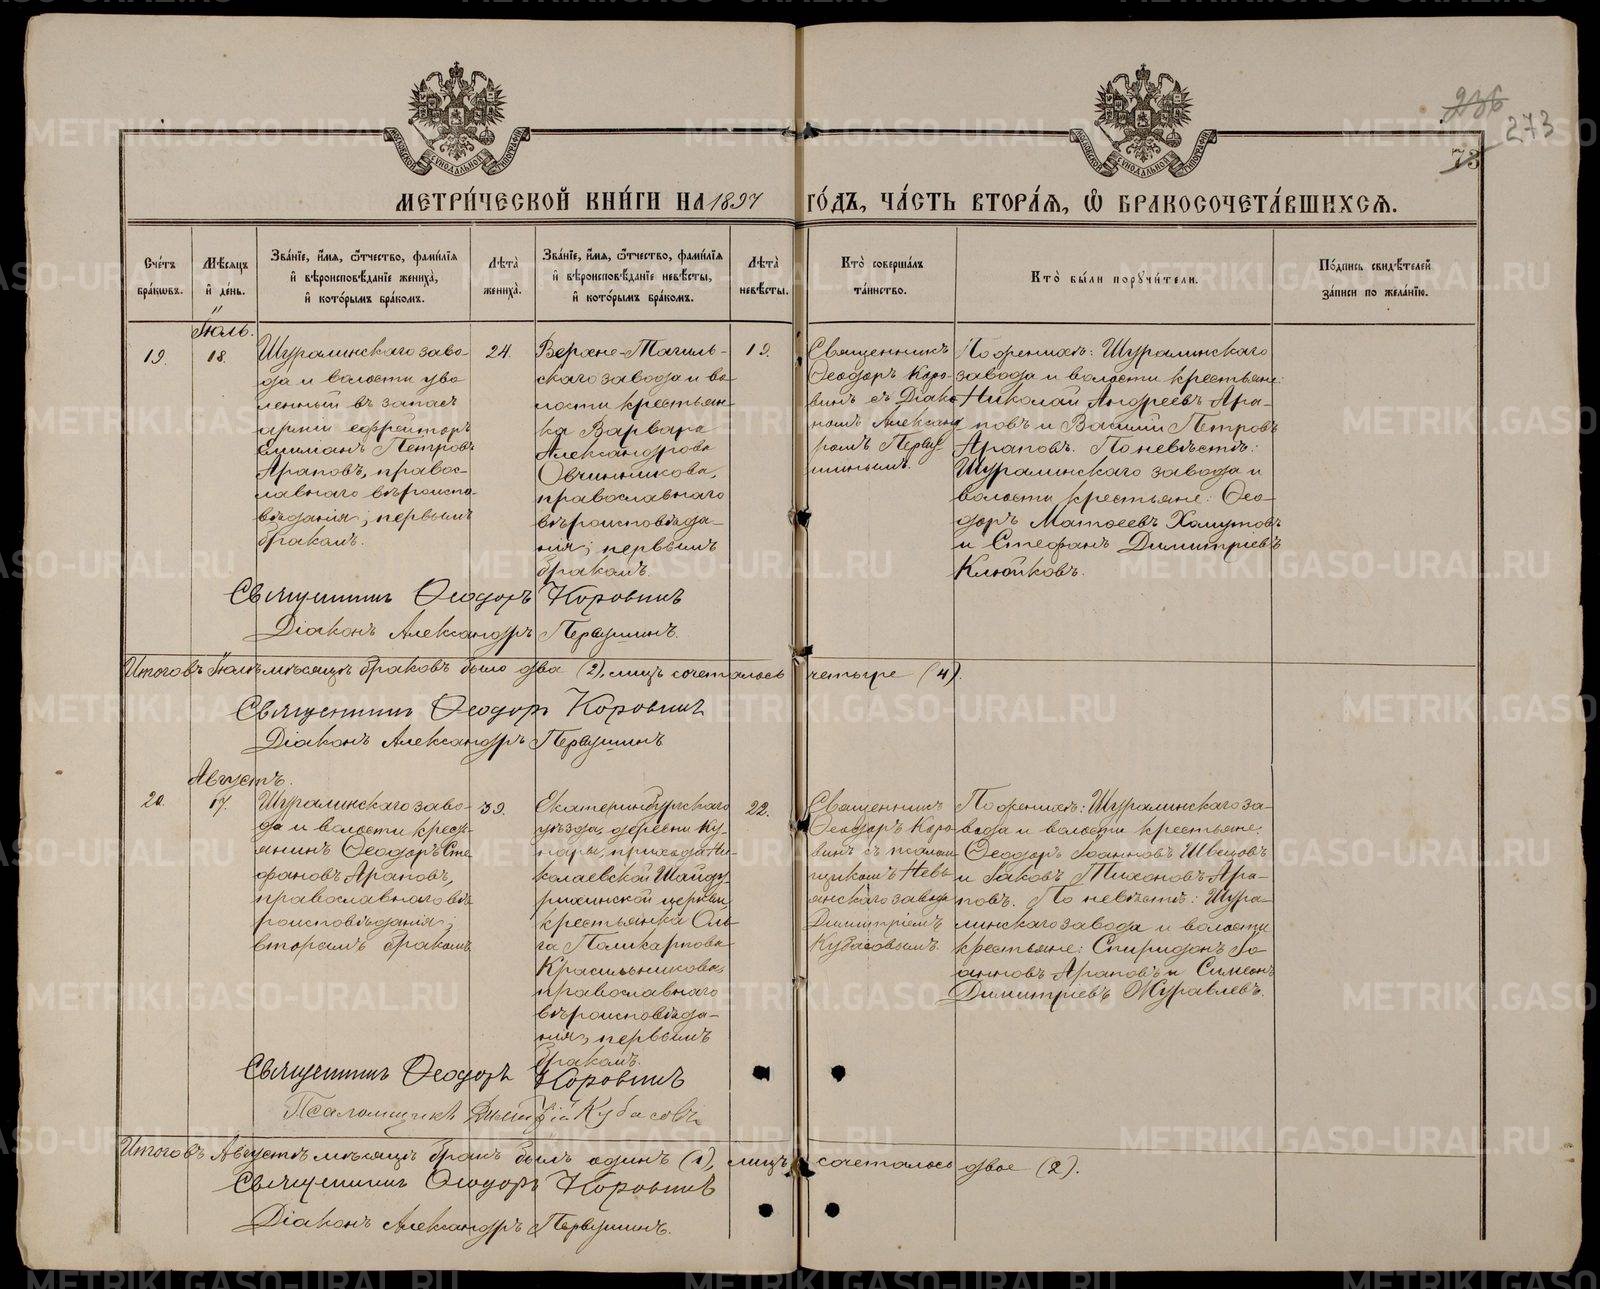 236
273
73
МЕТРИ́ЧЕСКОЙ КНИ́ГИ НА 1897 ГО́ДЪ, ЧА́СТЬ ВТОРА́Я, Ѡ БРАКОСОЧЕТА́ВШИХСЯ.
Сче́тъ
бра́кѡвъ.
Мѣ́сяцъ
и҆ де́нь.
Зва́нїе, и҆́мя, ѻ҆́тчество, фами́лїя
и҆ вѣроисповѣ́данїе жениха̀,
и҆ кото́рымъ бра́комъ.
Лѣ́та
жениха̀.
Зва́нїе, и҆́мя, ѻ҆́тчество, фами́лїя
и҆ вѣроисповѣ́данїе невѣ́сты,
и҆ кото́рымъ бра́комъ.
Лѣ́та
невѣ́сты.
Кто̀ соверша́лъ
та́инство.
Кто̀ бы́ли порꙋчи́тели.
По́дпись свидѣ́телей
за́писи по жела́нїю.
Іюль.
19.
18.
Шуралинскаго заво-
да и волости уво
ленный въ запасъ
арміи ефрейторъ
Симеонъ Петровъ
Араповъ, правос-
лавнаго вѣроиспо-
вѣданія; первымъ
бракомъ.
24.
Верхне-Тагиль-
скаго завода и во
лости крестьян-
ка Варвара
Александрова
Овчинникова,
православнаго
вѣроисповѣда-
нія; первымъ
бракомъ.
19.
Священникъ
Ѳеодоръ Коро-
винъ съ Діако
номъ Александ
ромъ Перву-
шинымъ.
По женихѣ: Шуралинскаго
завода и волости крестьяне:
Николай Андреевъ Ара-
повъ и Василій Петровъ
Араповъ. По невѣстѣ:
Шуралинскаго завода и
волости крестьяне: Ѳео-
доръ Матѳеевъ Хомутовъ
и Стефанъ Димитріевъ
Клюйковъ.
Священникъ Ѳеодоръ Коровинъ
Діаконъ Александръ Первушинъ.
Итого въ Іюлѣ мѣсяцѣ браковъ было два (2), лицъ сочеталось четыре (4).
Священникъ Ѳеодоръ Коровинъ
Діаконъ Александръ Первушинъ
Августъ.
20.
17.
Шуралинскаго заво-
да и волости крест
янинъ Ѳеодоръ Сте
фановъ Араповъ,
православнаго вѣ
роисповѣданія;
вторымъ бракомъ
39.
Екатеринбургскаго
уѣзда, деревни Ку-
нары, прихода Ни-
колаевской Шайду-
рихинской церкви,
крестьянка Оль-
га Поликарпова
Красильникова,
православнаго
вѣроисповѣда-
нія, первымъ
бракомъ.
22.
Священникъ
Ѳеодоръ Коро
винъ съ псалом
щикомъ Невь
янскаго завода
Димитріемъ
Кубасовымъ.
По женихѣ: Шуралинскаго за-
вода и волости крестьяне:
Ѳеодоръ Іоанновъ Швецовъ
и Іаковъ Тихоновъ Ара-
повъ. По невѣстѣ: Шура-
линскаго завода и волости
крестьяне: Спиридонъ Іо
анновъ Араповъ и Симеонъ
Димитріевъ Журавлевъ.
Священникъ Ѳеодоръ Коровинъ
Псаломщикъ Димитрій Кубасовъ
Итого въ Августѣ мѣсяцѣ бракъ былъ одинъ (1), лицъ сочеталось двое (2).
Священникъ Ѳеодоръ Коровинъ
Діаконъ Александръ Первушинъ.
METRIKI.GASO-URAL.RU